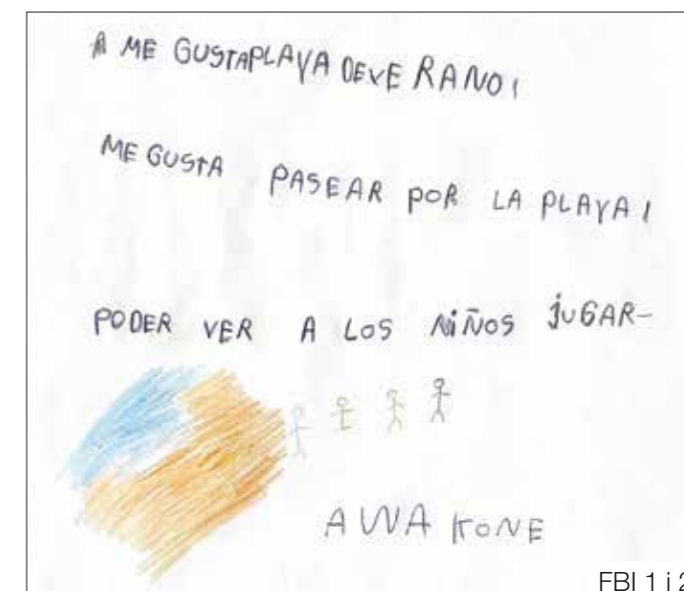 A ME GUSTAPLAYA DEVE RANO!
ME GUSTA PASEAR POR LA PLAYA!
PODER VER A LOS NiÑOS jUGAR-
AWA KONE
FBI 1 i 2